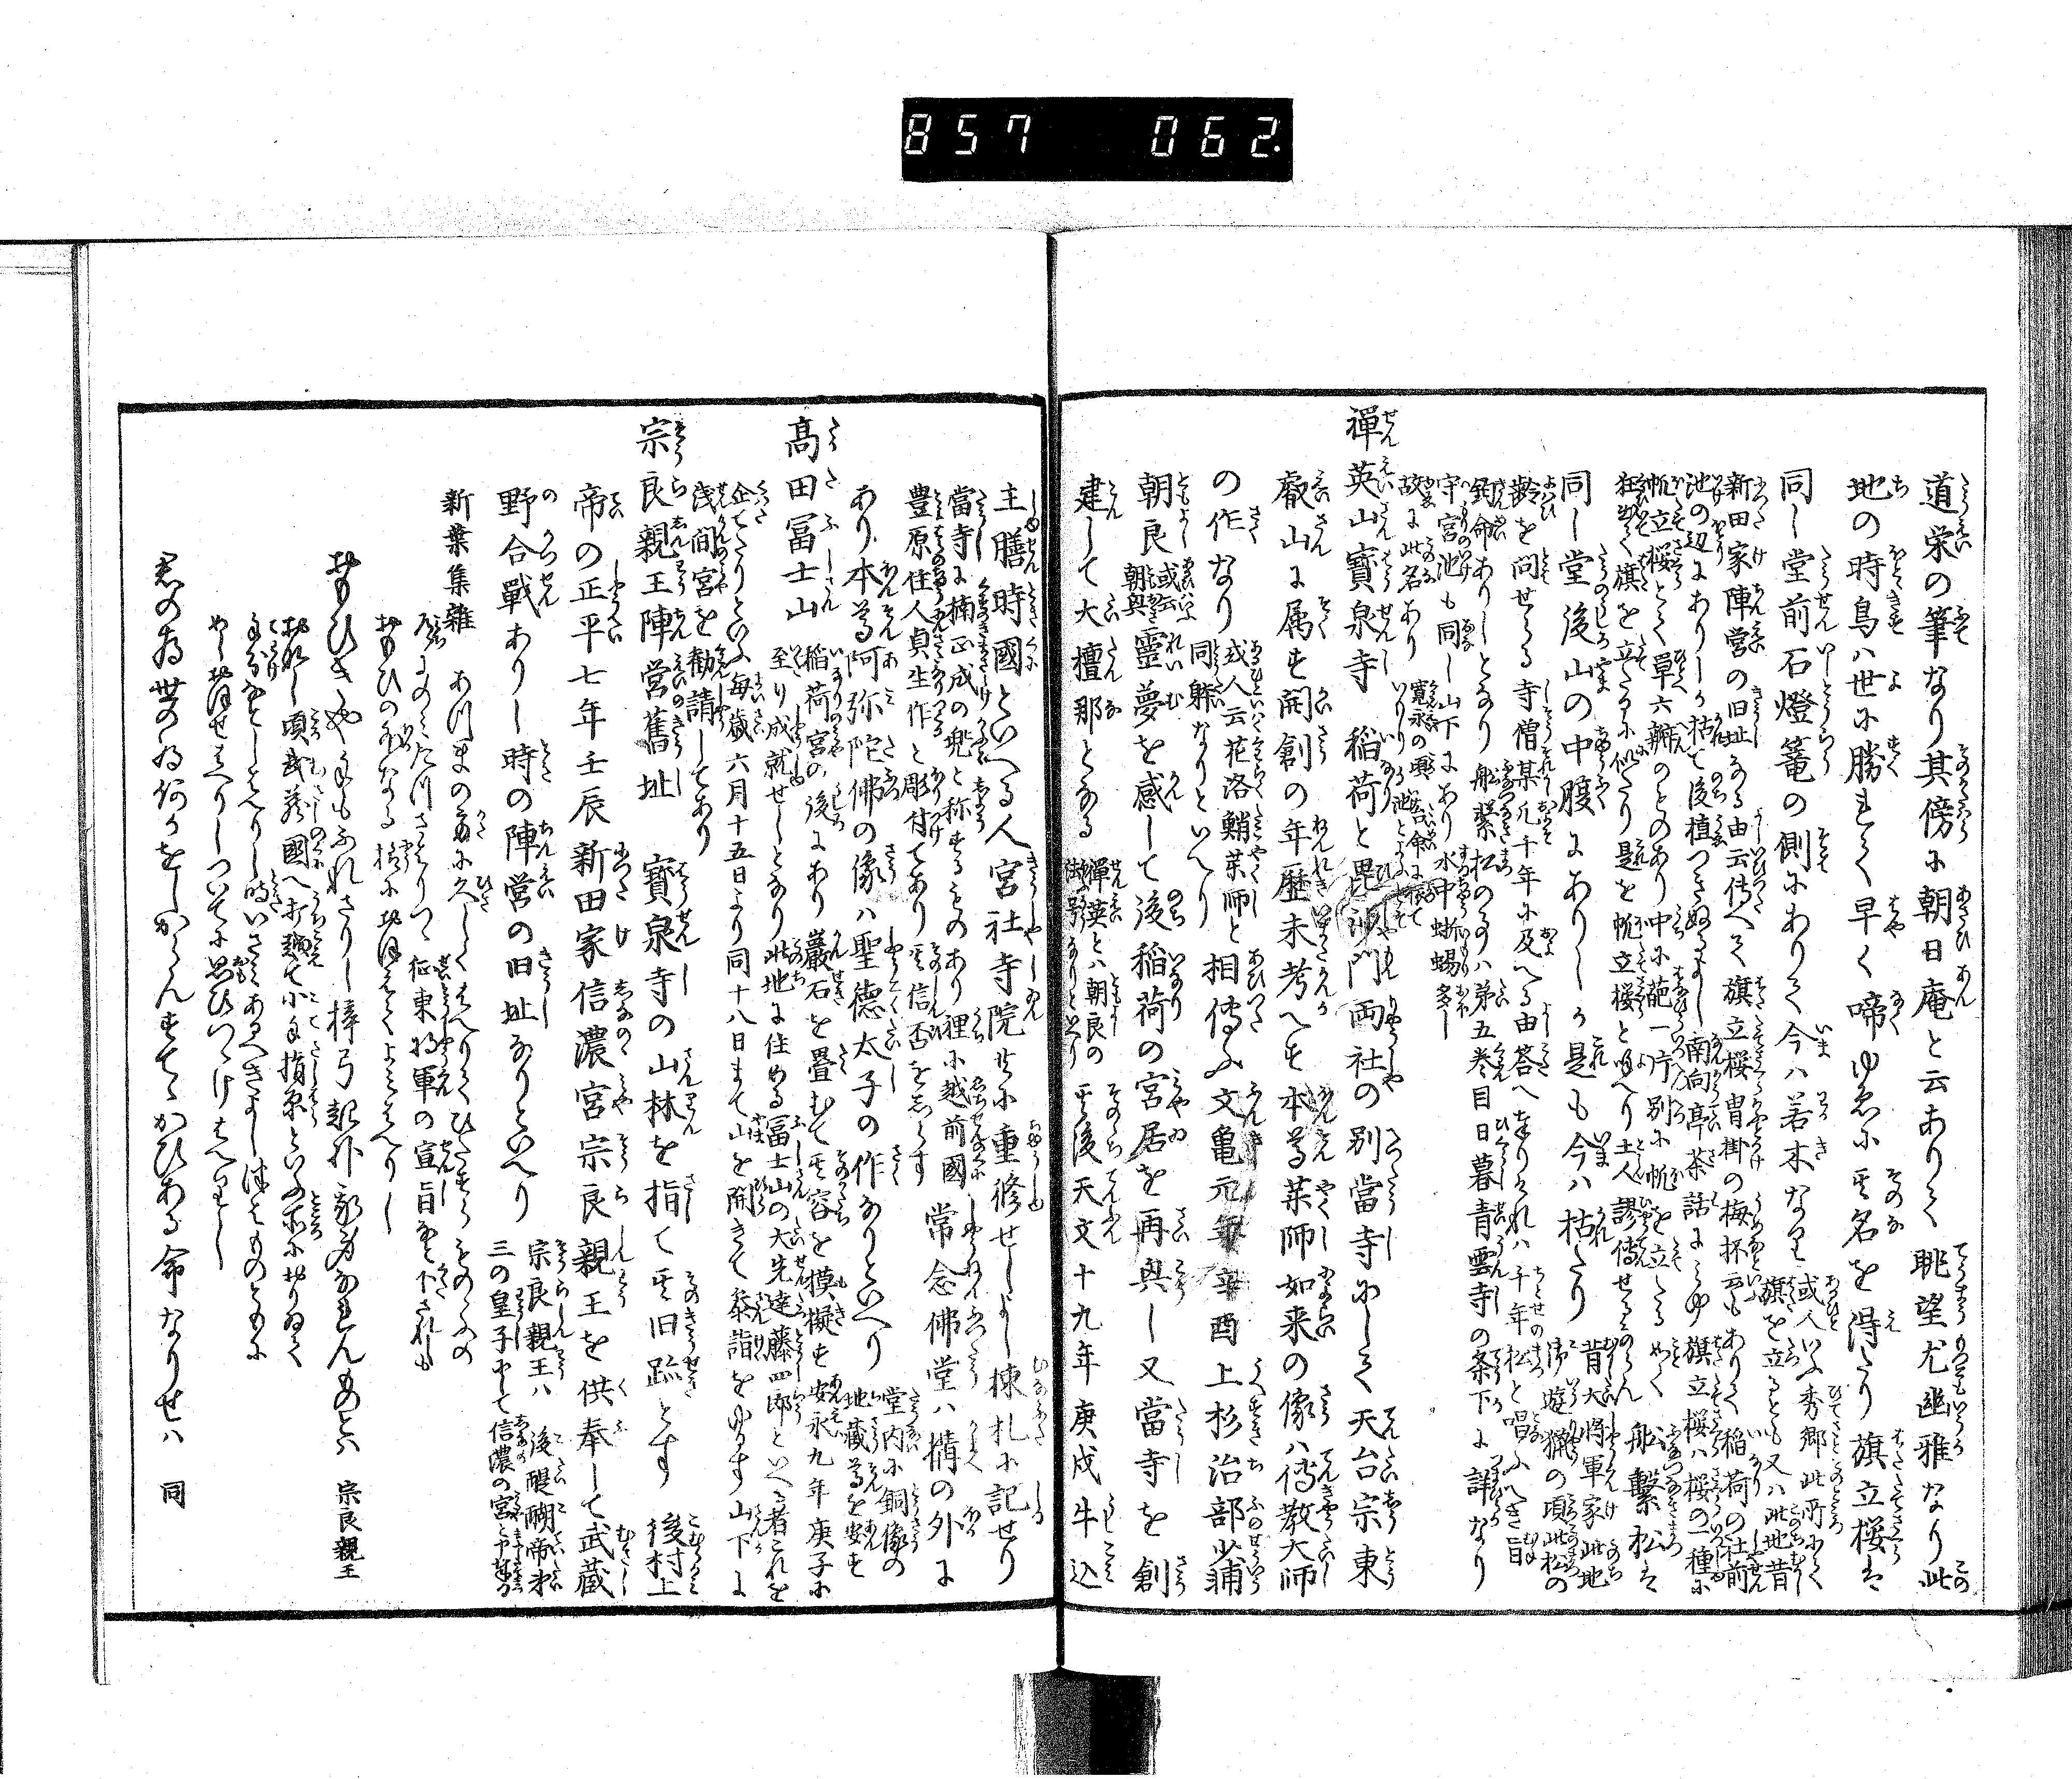 857 062.
道栄の筆なり其傍に朝日庵と云ありて眺望尤幽雅なり此
地の時鳥ハ世に勝れて早く啼ゆゑに其名を得たり旗立桜ハ
同し堂前石燈篭の側にありて今ハ若木なり
或人いふ秀郷此所にて
旗を立るとも又ハ此地昔
新田家陣営の旧址なる由云伝へて旗立桜冑掛の梅抔云もありて稲荷の社前
池の辺にありしか枯て後植つきぬるよし南向亭茶話にミゆ旗立桜ハ桜の一種に
帆立桜とて単六瓣のものあり中に葩一片別に帆を立たる如く
狂出て旗を立たるに似たり是を帆立桜と唱へり土人謬伝せるものならん
船繋松ハ
同し堂後山の中腹にありしか是も今ハ枯たり
昔大将軍家此地
御遊猟の頃此松の
齢を問せらる寺僧某凡千年に及へる由答へまゐりけれハ千年松と唱ふへき旨
鈞命ありしとなり船繋松の事ハ第五巻目日暮青雲寺の条下に詳なり
守宮池も同し山下にあり
水中蜥蜴多し
故に此名あり
禅英山寶泉寺 稲荷と毘沙門両社の別當寺にして天台宗東
叡山に属す開創の年歴未考へす本尊薬師如来の像ハ傳教大師
の作なり
或人云花洛鮹薬師と
同躰なりといへり
相傳ふ文亀元年辛酉上杉治部少輔
朝良
或云
朝興
靈夢を感して後稲荷の宮居を再興し又當寺を創
建して大檀那となる
禅英とハ朝良の
法号なりといへり
其後天文十九年庚戌牛込
主膳時國といへる人宮社寺院共に重修せしよし棟札に記せり
當寺に楠正成の兜と称するものあり裡に越前國
豊原住人貞生作と彫付てあり其信否をしらす
常念佛堂ハ構の外に
あり本尊阿弥陀佛の像ハ聖徳太子の作なりといへり
堂内に銅像の
地蔵尊を安す
高田冨士山
稲荷宮の後にあり巖石を畳むて其容を摸擬す安永九年庚子に
至り成就せしとなり此地に住める冨士山の大先達藤四郎といへる者これを
企てたりといふ毎歳六月十五日より同十八日まて山を開きて参詣をゆるす山下に
浅間宮を勧請してあり
宗良親王陣営舊址 寶泉寺の山林を指て其旧跡とす 後村上
帝の正平七年壬辰新田家信濃宮宗良親王を供奉して武蔵
野合戦ありし時の陣営の旧址なりといへり
宗良親王ハ 後醍醐帝第
三の皇子にして信濃の宮と申奉る
新葉集雑
あつまの方に久しくはへりてひたすらものゝふの
道にのミたつさはりつゝ征東将軍の宣旨なと下されしも
おもひの外なる様におほえてよミはへりし
おもひきや手もふれさりし梓弓起ふし我身なれんものとハ 宗良親王
おなし頃武蔵國へ打越て小手指原といふ所におりゐて
手分なとしはへりし時いさミあるへきよしつはものともに
めし仰せはへりしついてに思ひつゝけはへりし
君の為世のため何かをしからんすてゝかひある命なりせハ 同